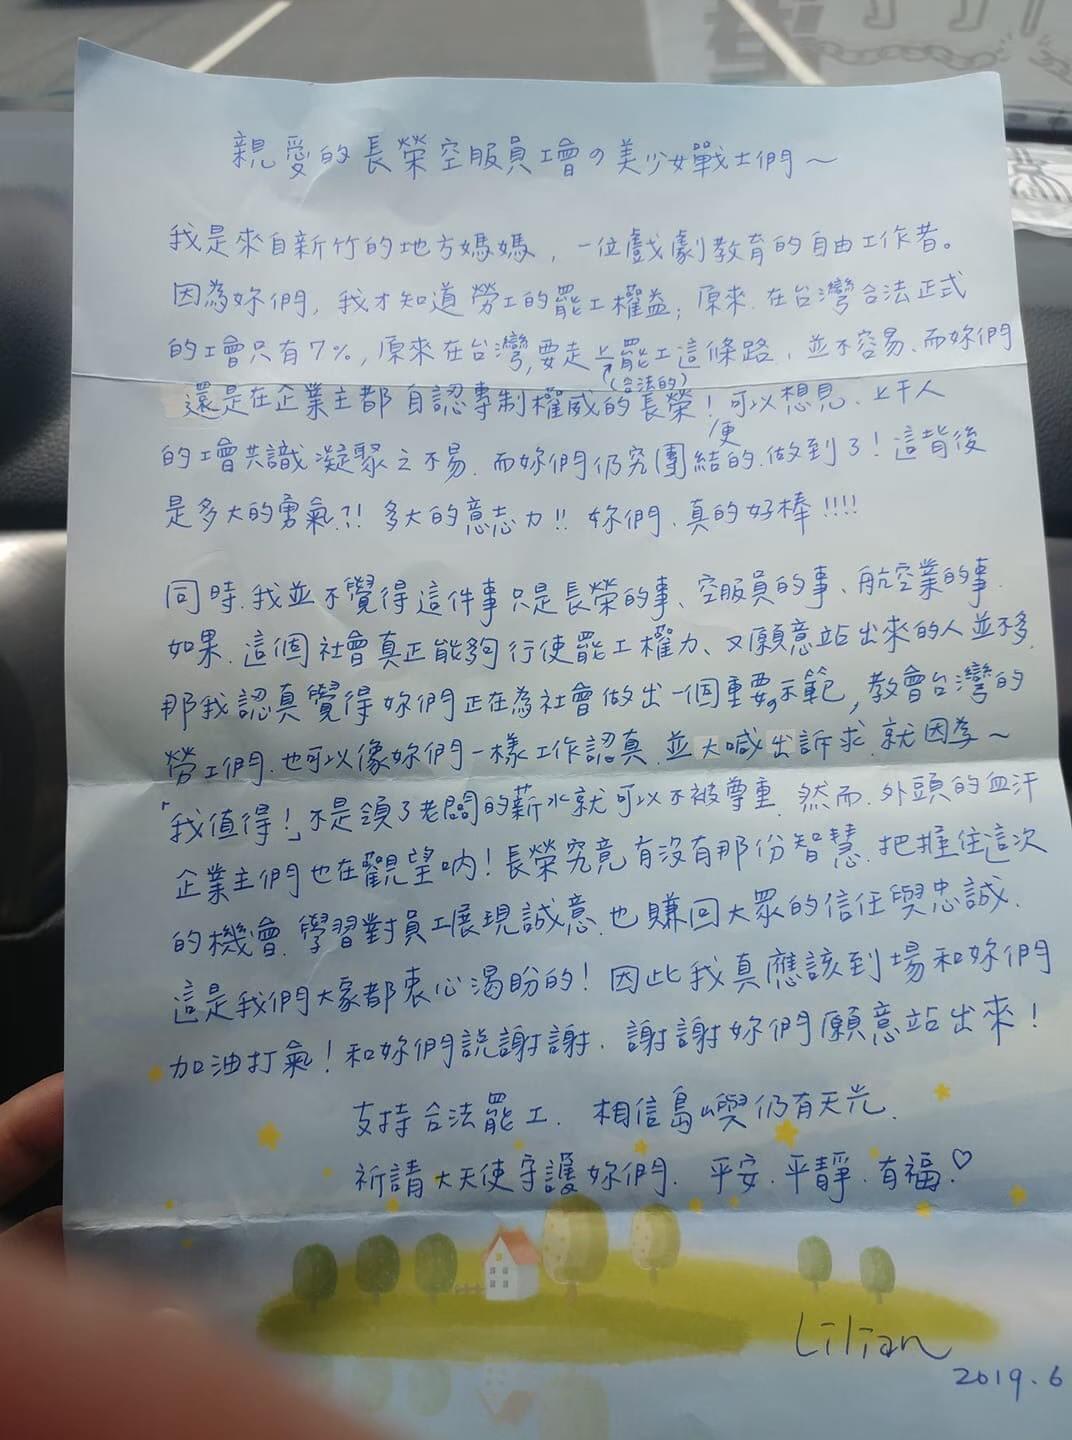 親愛的長榮空服員工會の美少女戰士們～
我是來自新竹的地方媽媽，一位戲劇教育的自由工作者。
因為妳們，我才知道勞工的罷工權益；原來，在台灣合法正式
的工會只有7%，原來在台灣，要走上(合法的)罷工這條路，並不容易、而妳們
還是在企業主都自認專制權威的長榮！可以想見、上千人
的工會共識凝聚之不易、而妳們仍究便團結的、做到了！這背後
是多大的勇氣?! 多大的意志力!! 妳們、真的好棒!!!!
同時、我並不覺得這件事只是長榮的事、空服員的事、航空業的事、
如果、這個社會真正能夠行使罷工權力、又願意站出來的人並不多、
那我認真覺得妳們正在為社會做出一個重要示範，教會台灣的
勞工們、也可以像妳們一樣工作認真、並大喊出訴求、就因為～
「我值得！」不是領了老闆的薪水就可以不被尊重、然而、外頭的血汗
企業主們也在觀望吶！長榮究竟有沒有那份智慧、把握住這次
的機會、學習對員工展現誠意、也賺回大眾的信任與忠誠、
這是我們大家都衷心渴盼的！因此我真應該到場和妳們
加油打氣！和妳們說謝謝、謝謝妳們願意站出來！
支持合法罷工、相信島嶼仍有天光、
祈請大天使守護妳們、平安、平靜、有福♡
Lilian
2019.6